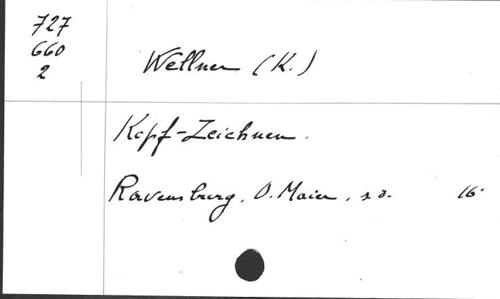 727
660
2
Wellner (K.)
Kopf-Zeichnen.
Ravensburg, O. Maier, s.d. 16°